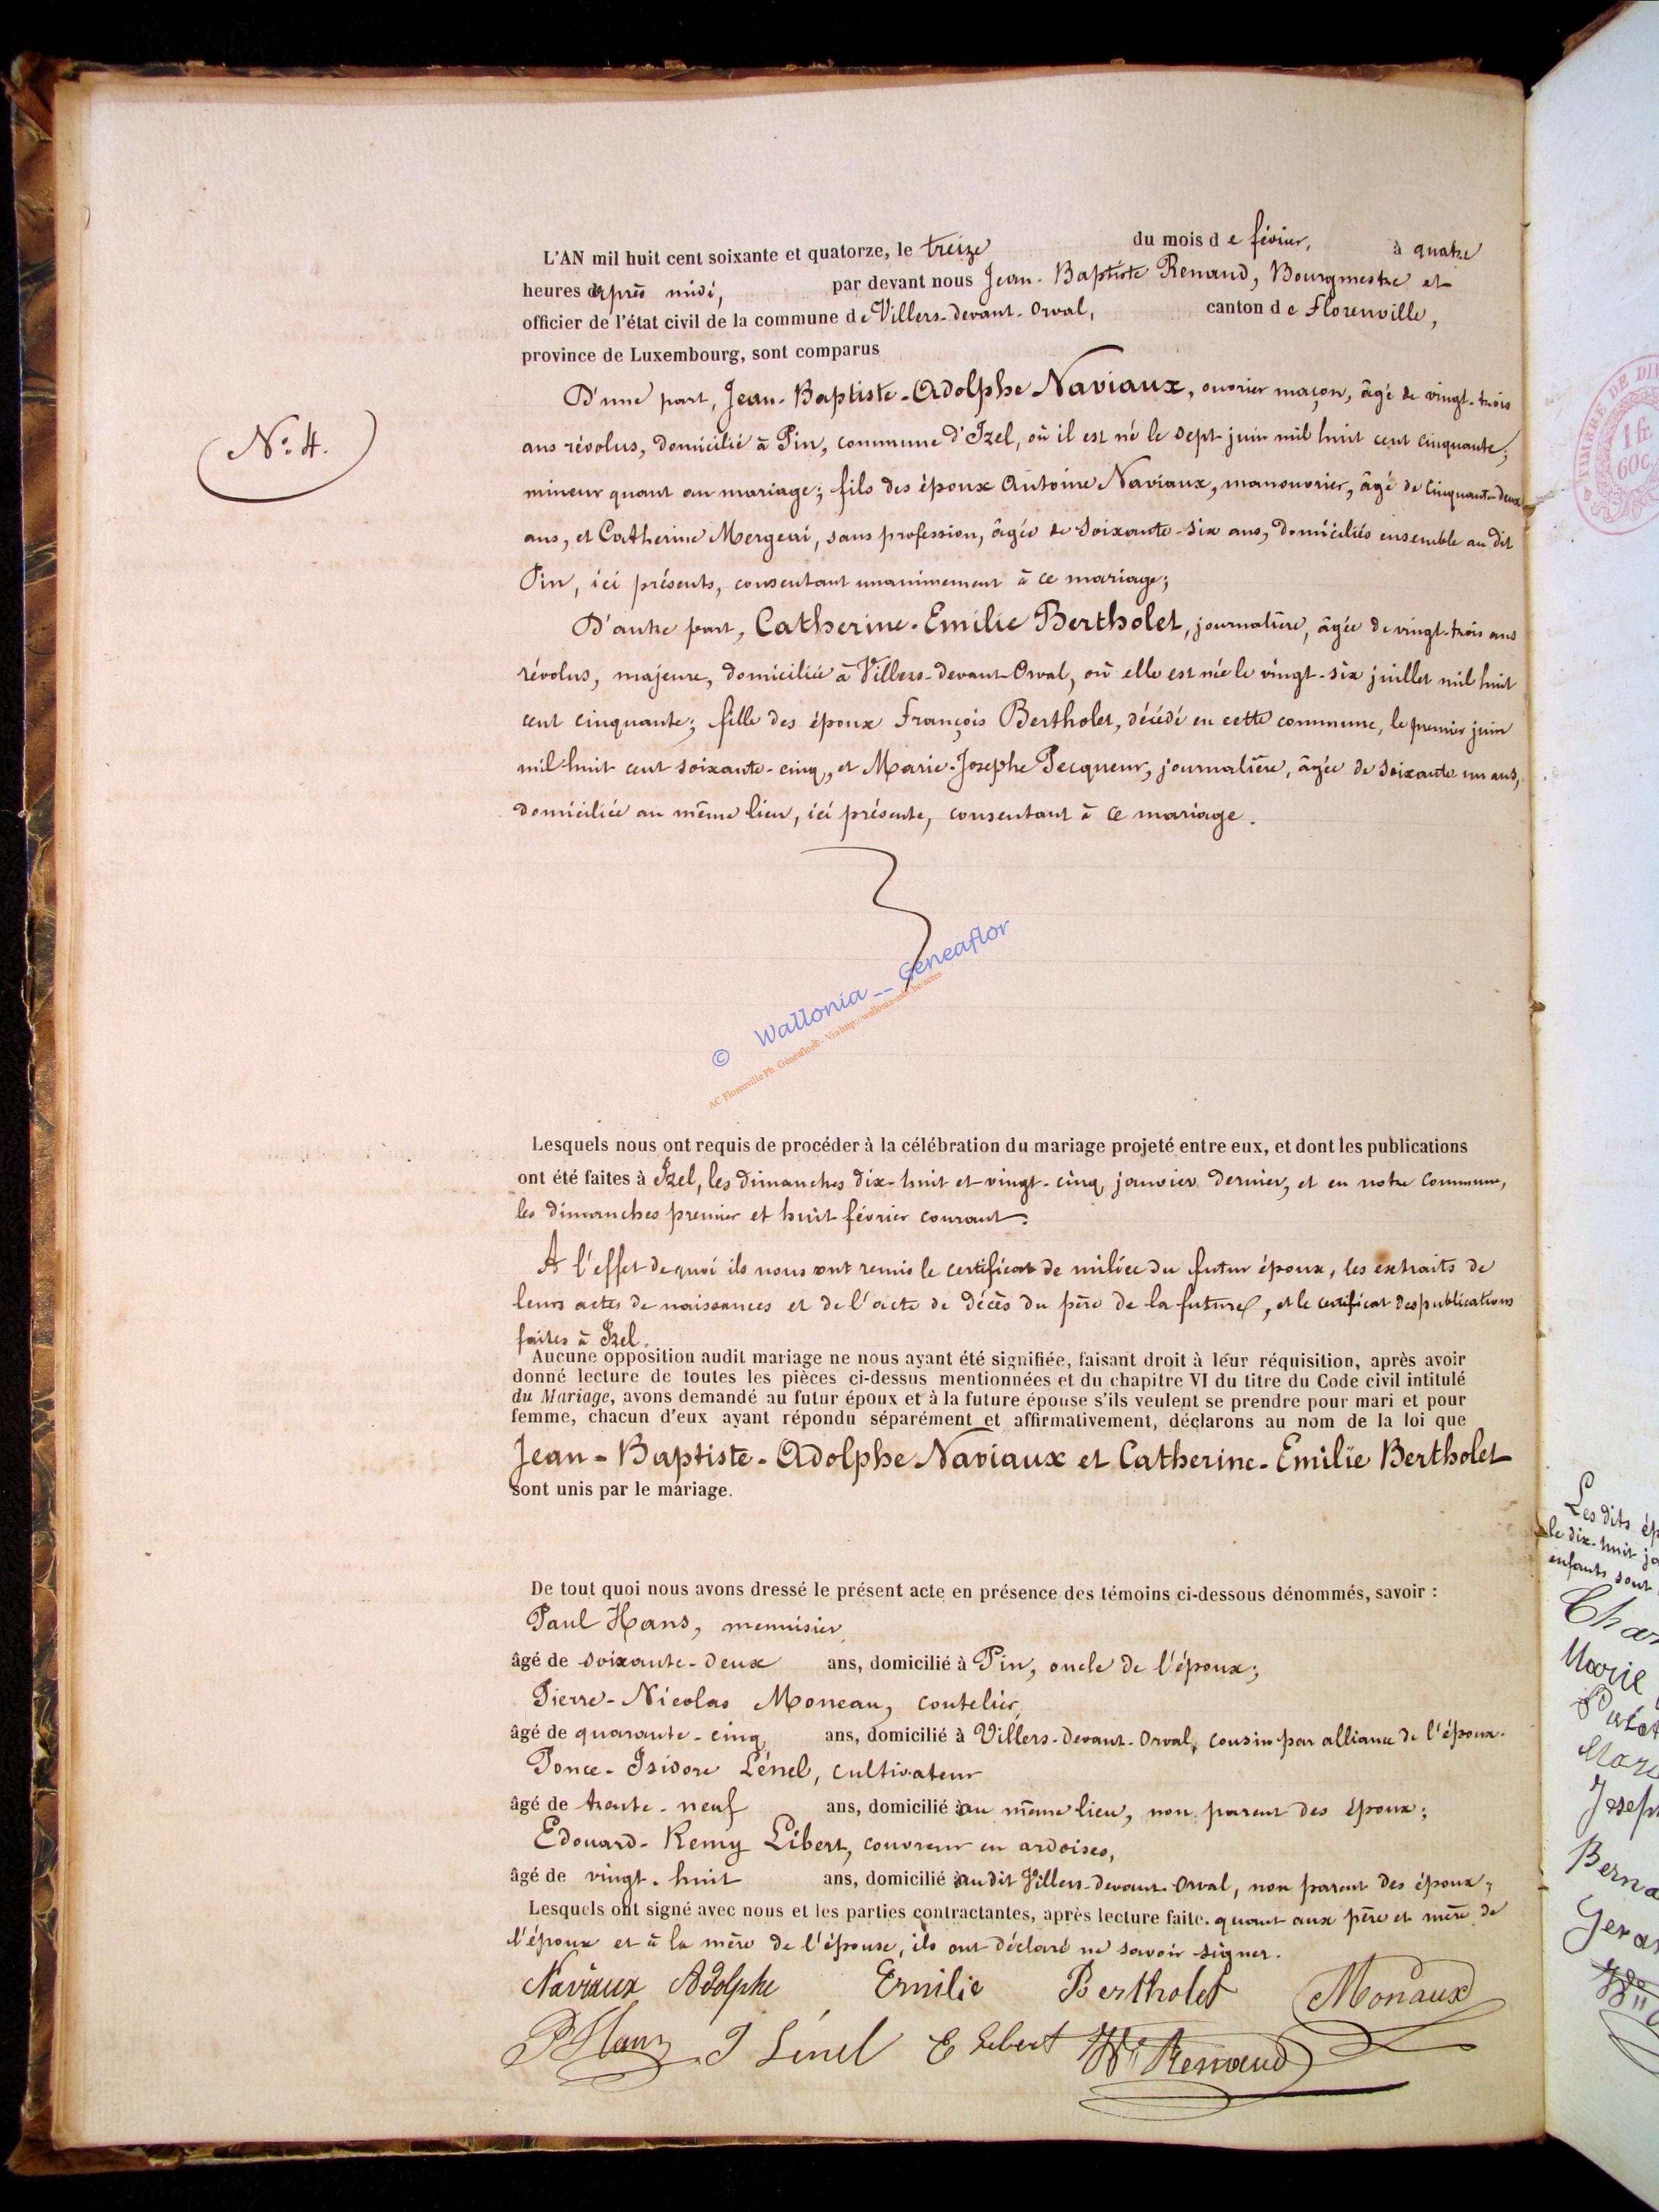 L'AN mil huit cent soixante et quatorze, le treize du mois de février, à quatre
heures après midi, par devant nous Jean-Baptiste Renaud, Bourgmestre et
officier de l'état civil de la commune de Villers-devant-Orval, canton de Florenville,
province de Luxembourg, sont comparus
D'une part, Jean-Baptiste-Adolphe Naviaux, ouvrier maçon, âgé de vingt-trois
N.º 4.
ans révolus, domicilié à Pin, commune d'Izel, où il est né le sept juin mil huit cent cinquante;
mineur quant au mariage; fils des époux Antoine Naviaux, manouvrier, âgé de cinquante-deux
ans, et Catherine Mergeai, sans profession, âgée de soixante-six ans, domiciliés ensemble au dit
Pin, ici présents, consentant unanimement à ce mariage;
D'autre part, Catherine-Emilie Bertholet, journalière, âgée de vingt-trois ans
révolus, majeure, domiciliée à Villers-devant-Orval, où elle est née le vingt-six juillet mil huit
cent cinquante; fille des époux François Bertholet, décédé en cette commune, le premier juin
mil huit cent soixante-cinq, et Marie-Josephe Pecqueur, journalière, âgée de soixante un ans,
domiciliée au même lieu, ici présente, consentant à ce mariage.
© Wallonia -- Geneaflor
AC Florenville Ph. Généaflor® - Via http://wallonia-asbl.be/actes
Lesquels nous ont requis de procéder à la célébration du mariage projeté entre eux, et dont les publications
ont été faites à Izel, les dimanches dix-huit et vingt-cinq janvier dernier, et en notre commune,
les dimanches premier et huit février courant.
A l'effet de quoi ils nous ont remis le certificat de milice du futur époux, les extraits de
leurs actes de naissances et de l'acte de décès du père de la future, et le certificat des publications
faites à Izel.
Aucune opposition audit mariage ne nous ayant été signifiée, faisant droit à leur réquisition, après avoir
donné lecture de toutes les pièces ci-dessus mentionnées et du chapitre VI du titre du Code civil intitulé
du Mariage, avons demandé au futur époux et à la future épouse s'ils veulent se prendre pour mari et pour
femme, chacun d'eux ayant répondu séparément et affirmativement, déclarons au nom de la loi que
Jean-Baptiste-Adolphe Naviaux et Catherine-Emilie Bertholet
sont unis par le mariage.
De tout quoi nous avons dressé le présent acte en présence des témoins ci-dessous dénommés, savoir :
Paul Hans, menuisier,
âgé de soixante-deux ans, domicilié à Pin, oncle de l'époux;
Pierre-Nicolas Moneau, coutelier,
âgé de quarante-cinq ans, domicilié à Villers-devant-Orval, cousin par alliance de l'époux.
Ponce-Isidore Lénel, cultivateur
âgé de trente-neuf ans, domicilié au même lieu, non parent des époux;
Edouard-Remy Libert, couvreur en ardoises,
âgé de vingt-huit ans, domicilié audit Villers-devant-Orval, non parent des époux;
Lesquels ont signé avec nous et les parties contractantes, après lecture faite. quant aux père et mère de
l'époux et à la mère de l'épouse, ils ont déclaré ne savoir signer.
Naviaux Adolphe Emilie Bertholet Monaux
P Hans J Lénel E Libert Renaud
TIMBRE DE
1 fr.
60c
Les dits
le dix-huit
enfants sont
Marie